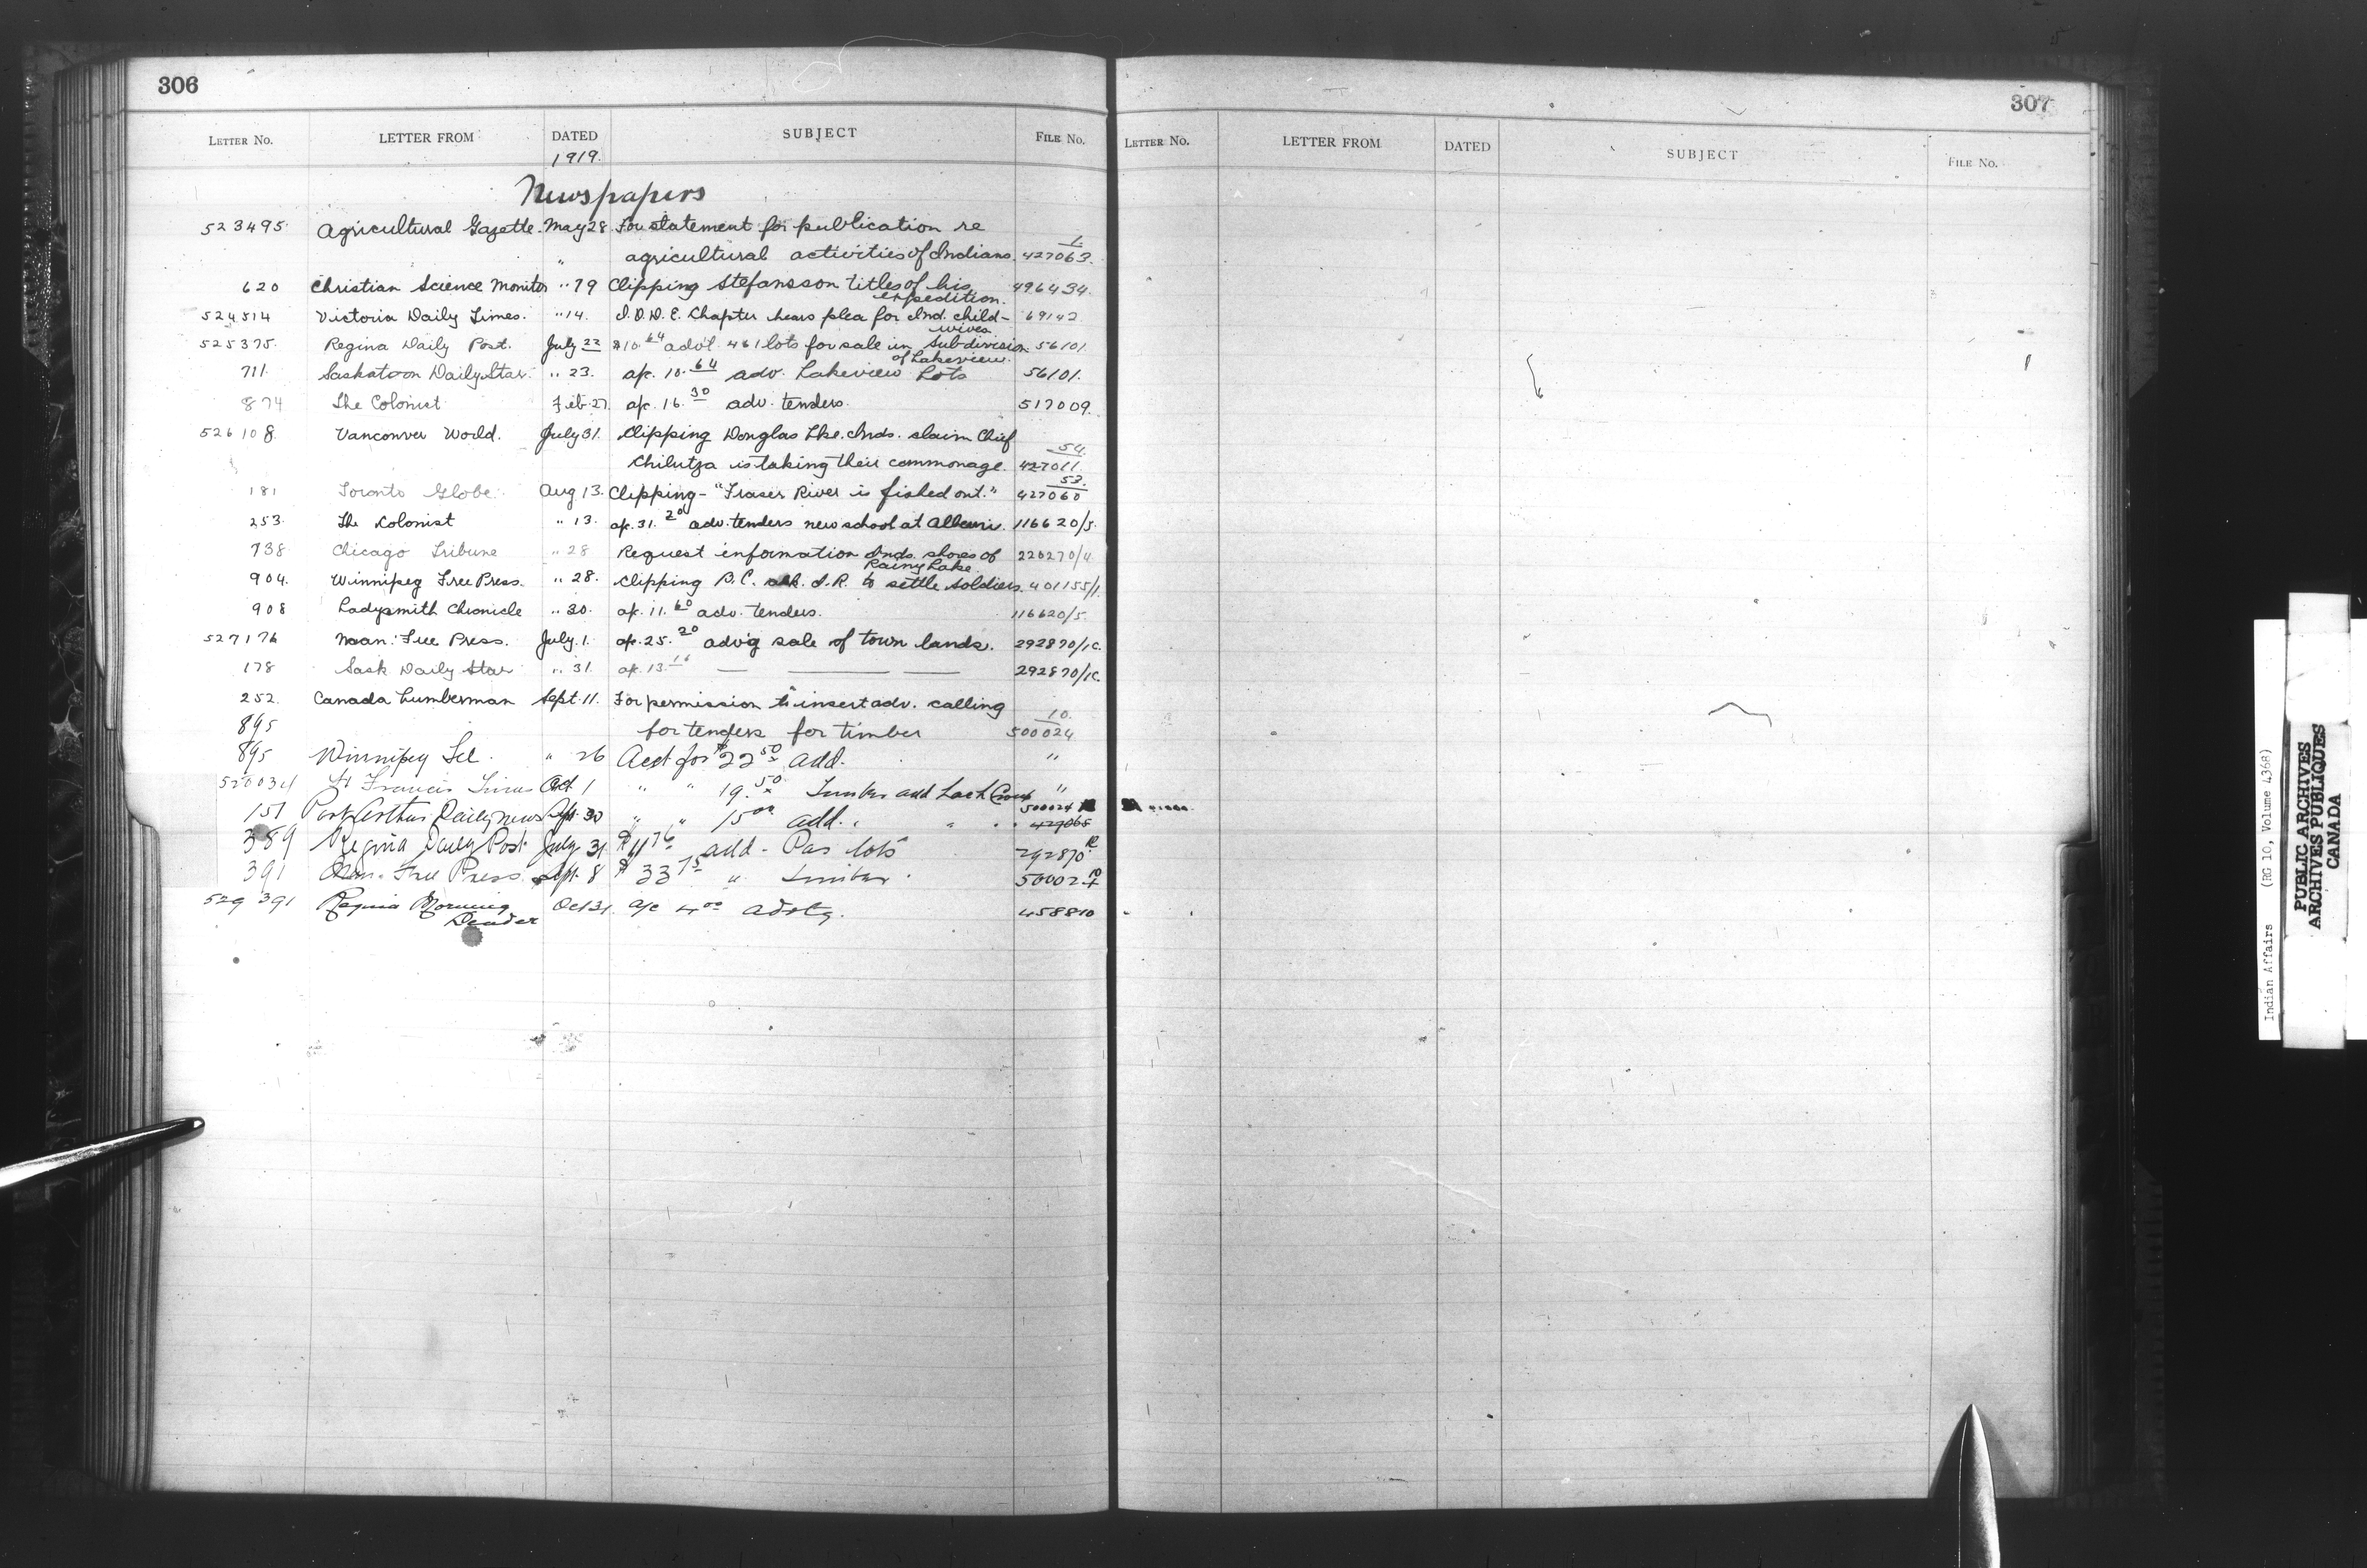 306
LETTER No. LETTER FROM DATED SUBJECT FILE No.
1919.
Newspapers
523495. Agricultural Gazette. May 28 For statement for publication re
" agricultural activities of Indians. 1 427063.
620 Christian Science Monitor " 19 Clipping Stefansson titles of his 496434.
expedition.
524514 Victoria Daily Times. " 14. I.O.D.E. Chapter hears plea for Ind. child- 69142
wives.
525375. Regina Daily Post. July 22 $10.64 adv't. 461 lots for sale in subdivision 56101
of Lakeview.
711. Saskatoon Daily Star. " 23. a/c. 10.64 adv. Lakeview Lots 56101.
874 The Colonist Feb. 27. a/c. 16.30 adv. tenders. 517009.
526108. Vancouver World. July 31. Clipping Douglas Lke. Inds. claim Chief
Chilutza is taking their commonage. 54 427011.
181 Toronto Globe. Aug 13. Clipping - "Fraser River is fished out." 53. 427060
253. The Colonist " 13. a/c. 31.20 adv. tenders new school at Alberni. 116620/5.
738 Chicago Tribune " 28 Request information Inds. shores of 220270/4.
Rainy Lake.
904. Winnipeg Free Press. " 28. Clipping B.C. ask I.R. to settle soldiers. 401155/1.
908 Ladysmith Chronicle " 30. a/c. 11.60 adv. tenders. 116620/5.
527176 Man. Free Press. July. 1. a/c. 25.20 adv'g sale of town lands. 292870/1C.
178 Sask Daily Star " 31. a/c. 13.16 — " — — 292870/1C.
252. Canada Lumberman Sept. 11. For permission to insert adv. calling
895 for tenders for timber 10. 500024
895 Winnipeg Tel. " 26 Acct for $22.50 add. "
Ft Francis Times Oct 1 " " 19.50 Timber add Lac la Croix "
151 Port Arthur Daily News Sept. 30 " " 15.00 add. " " 500024
427065
389 Regina Daily Post July 31 add - Pas lots 292870
391 Man. Free Press Sept. 8 $33.75 " Timber. 500024 10
529391 Regina Morning Oct 31 a/c 4.00 advtg. 458810
Leader
307
LETTER No. LETTER FROM DATED SUBJECT FILE No.
Indian Affairs (RG 10, Volume 4368)
PUBLIC ARCHIVES
ARCHIVES PUBLIQUES
CANADA